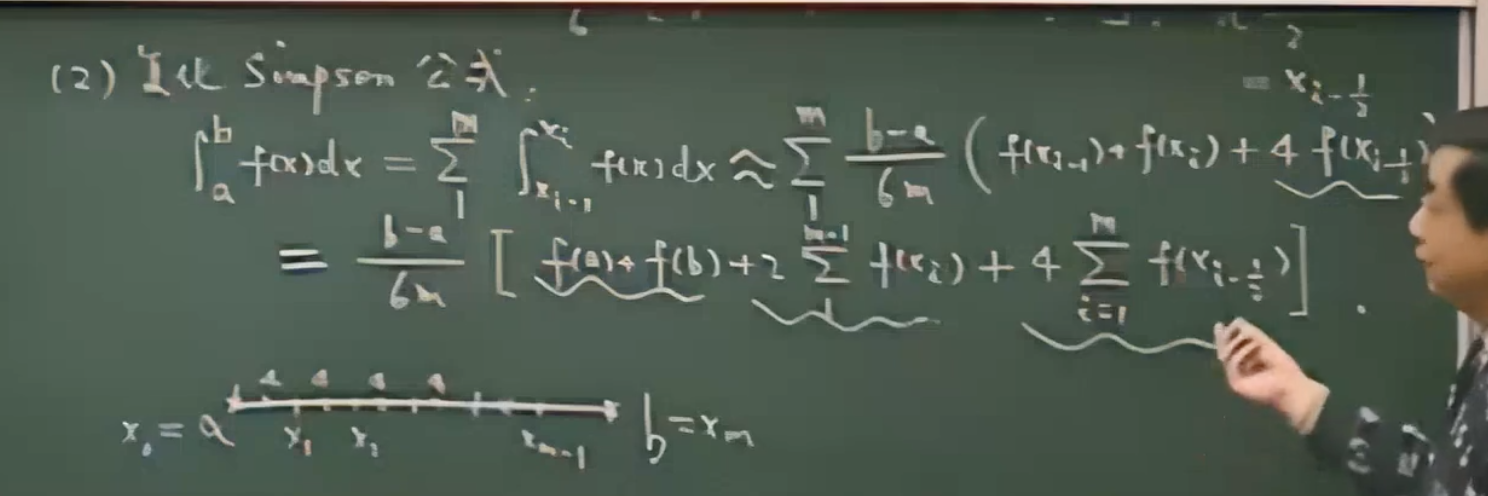 (2) Simpson 公式.
= x_{i-\frac{1}{2}}
∫_a^b f(x)dx = \sum_1^m ∫_{x_{i-1}}^{x_i} f(x)dx ≈ \sum_1^m \frac{b-a}{6m} ( f(x_{i-1})+f(x_i)+4 f(x_{i-\frac{1}{2}})
= \frac{b-a}{6m} [ f(a)+f(b)+2 \sum_1^{m-1} f(x_i)+4 \sum_{i=1}^m f(x_{i-\frac{1}{2}}) ].
4 4 4 4
x_0=a x_1 x_2 x_{m-1} b=x_m